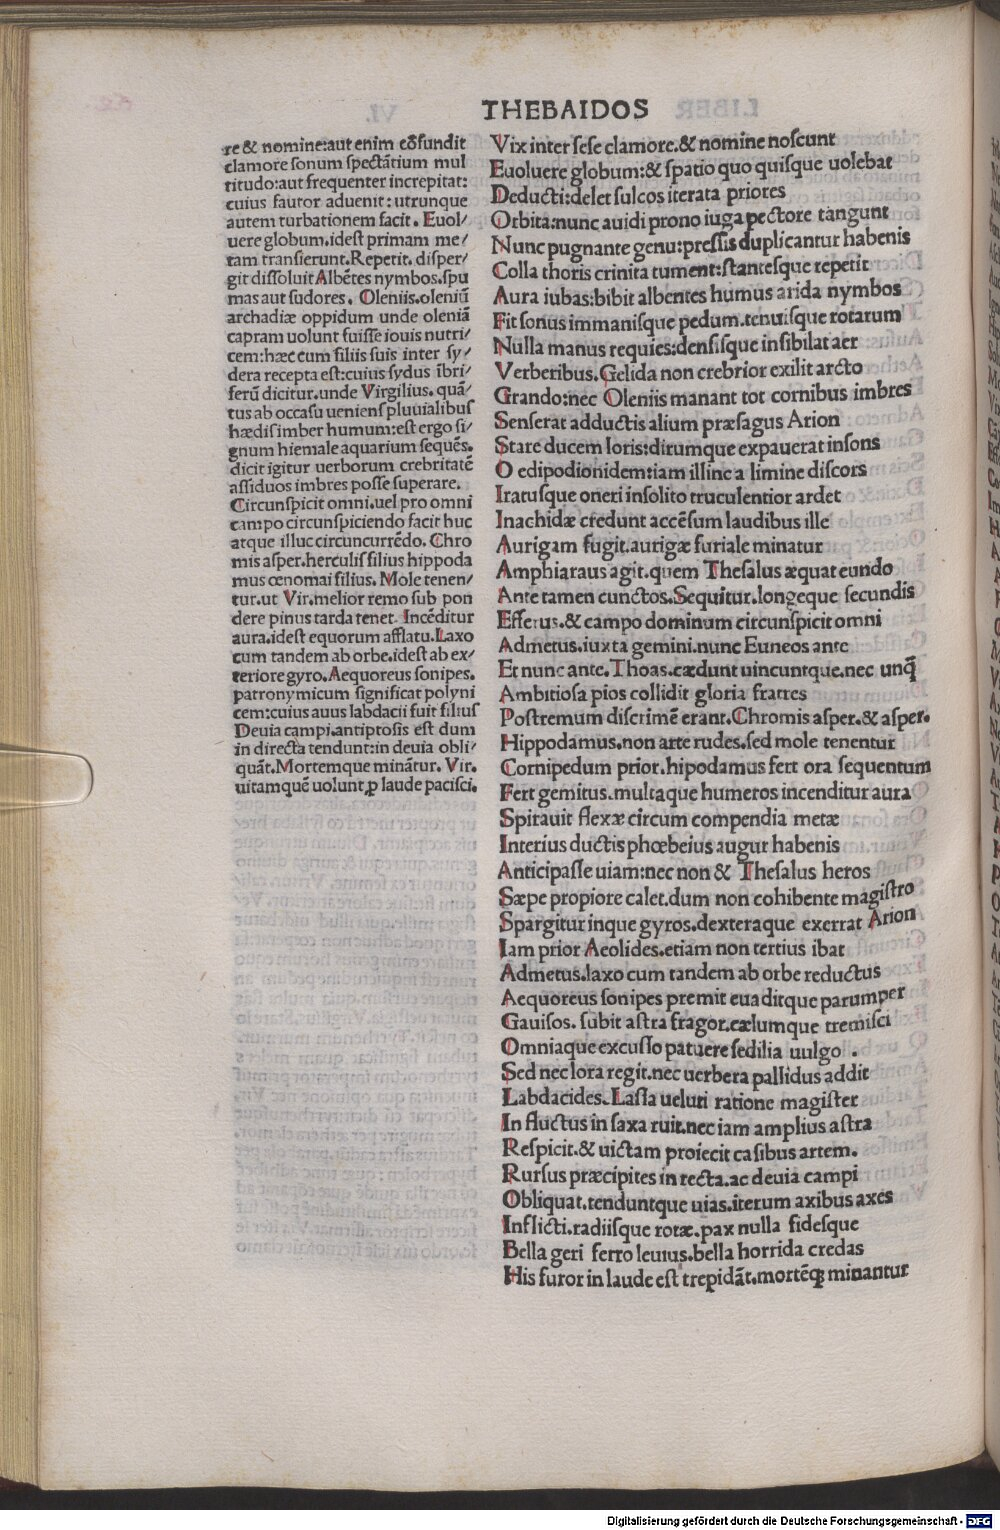 THEBAIDOS
re & nomine:aut enim cōfundit
clamore sonum spectātium mul
titudo:aut frequenter increpitat:
cuius fautor aduenit:utrunque
autem turbationem facit. Euol/
uere globum.idest primam me/
tam transierunt.Repetit.disper/
git dissoluit Albētes nymbos.spu
mas aut sudores. Oleniis.oleniū
archadiæ oppidum unde oleniā
capram uolunt fuisse iouis nutri/
cem:hæc cum filiis suis inter sy/
dera recepta est:cuius sydus ībri/
ferū dicitur.unde Virgilius.quā/
tus ab occasu ueniens pluuialibus
hædis imber humum:est ergo si/
gnum hiemale aquarium sequēs.
dicit igitur uerborum crebritatē
assiduos imbres posse superare.
Circunspicit omni.uel pro omni
campo circunspiciendo facit huc
atque illuc circuncurrēdo. Chro
mis asper.herculis filius hippoda
mus œnomai filius. Mole tenen/
tur.ut Vir.melior remo sub pon
dere pinus tarda tenet. Incēditur
aura.idest equorum afflatu.Laxo
cum tandem ab orbe.idest ab ex/
teriore gyro.Aequoreus sonipes.
patronymicum significat polyni
cem:cuius auus labdacii fuit filius
Deuia campi.antiptosis est dum
in directa tendunt:in deuia obli/
quāt.Mortemque mināтur. Vir.
uitamquē uolunt ꝓ laude pacisci.
Vix inter sese clamore.& nomine noscunt
Euoluere globum:& spatio quo quisque uolebat
Deducti:delet sulcos iterata priores
Orbita:nunc auidi prono iuga pectore tangunt
Nunc pugnante genu:pressis duplicantur habenis
Colla thoris crinita tument:stantesque repetit
Aura iubas:bibit albentes humus arida nymbos
Fit sonus immanisque pedum.tenuisque rotarum
Nulla manus requies:densisque insibilat aer
Verberibus.Gelida non crebrior exilit arcto
Grando:nec Oleniis manant tot cornibus imbres
Senserat adductis alium præsagus Arion
Stare ducem loris:dirumque expauerat insons
O edipodionidem:iam illinc a limine discors
Iratusque oneri insolito truculentior ardet
Inachidæ credunt accēsum laudibus ille
Aurigam fugit.aurigæ furiale minatur
Amphiaraus agit.quem Thesalus æquat eundo
Ante tamen cunctos.Sequitur.longeque secundis
Efferus.& campo dominum circunspicit omni
Admetus.iuxta gemini.nunc Euneos ante
Et nunc ante.Thoas.cædunt uincuntque.nec unq̄
Ambitiosa pios collidit gloria fratres
Postremum discrimē erant.Chromis asper.& asper.
Hippodamus.non arte rudes.sed mole tenentur
Cornipedum prior.hipodamus fert ora sequentum
Fert gemitus.multaque humeros incenditur aura
Spirauit flexæ circum compendia metæ
Interius ductis phœbeius augur habenis
Anticipasse uiam:nec non & Thesalus heros
Sæpe propiore calet.dum non cohibente magistro
Spargitur inque gyros.dexteraque exerrat Arion
Iam prior Aeolides.etiam non tertius ibat
Admetus.laxo cum tandem ab orbe reductus
Aequoreus sonipes premit euaditque parumper
Gauisos. subit astra fragor.cælumque tremisci
Omniaque excusso patuere sedilia uulgo .
Sed nec lora regit.nec uerbera pallidus addit
Labdacides.Lassa ueluti ratione magister
In fluctus in saxa ruit.nec iam amplius astra
Respicit.& uictam proiecit casibus artem.
Rursus præcipites in recta.ac deuia campi
Obliquat.tenduntque uias.iterum axibus axes
Inflicti.radiisque rotæ.pax nulla fidesque
Bella geri ferro leuius.bella horrida credas
His furor in laude est trepidāt.mortēq; minantur
Digitalisierung gefördert durch die Deutsche Forschungsgemeinschaft - DFG